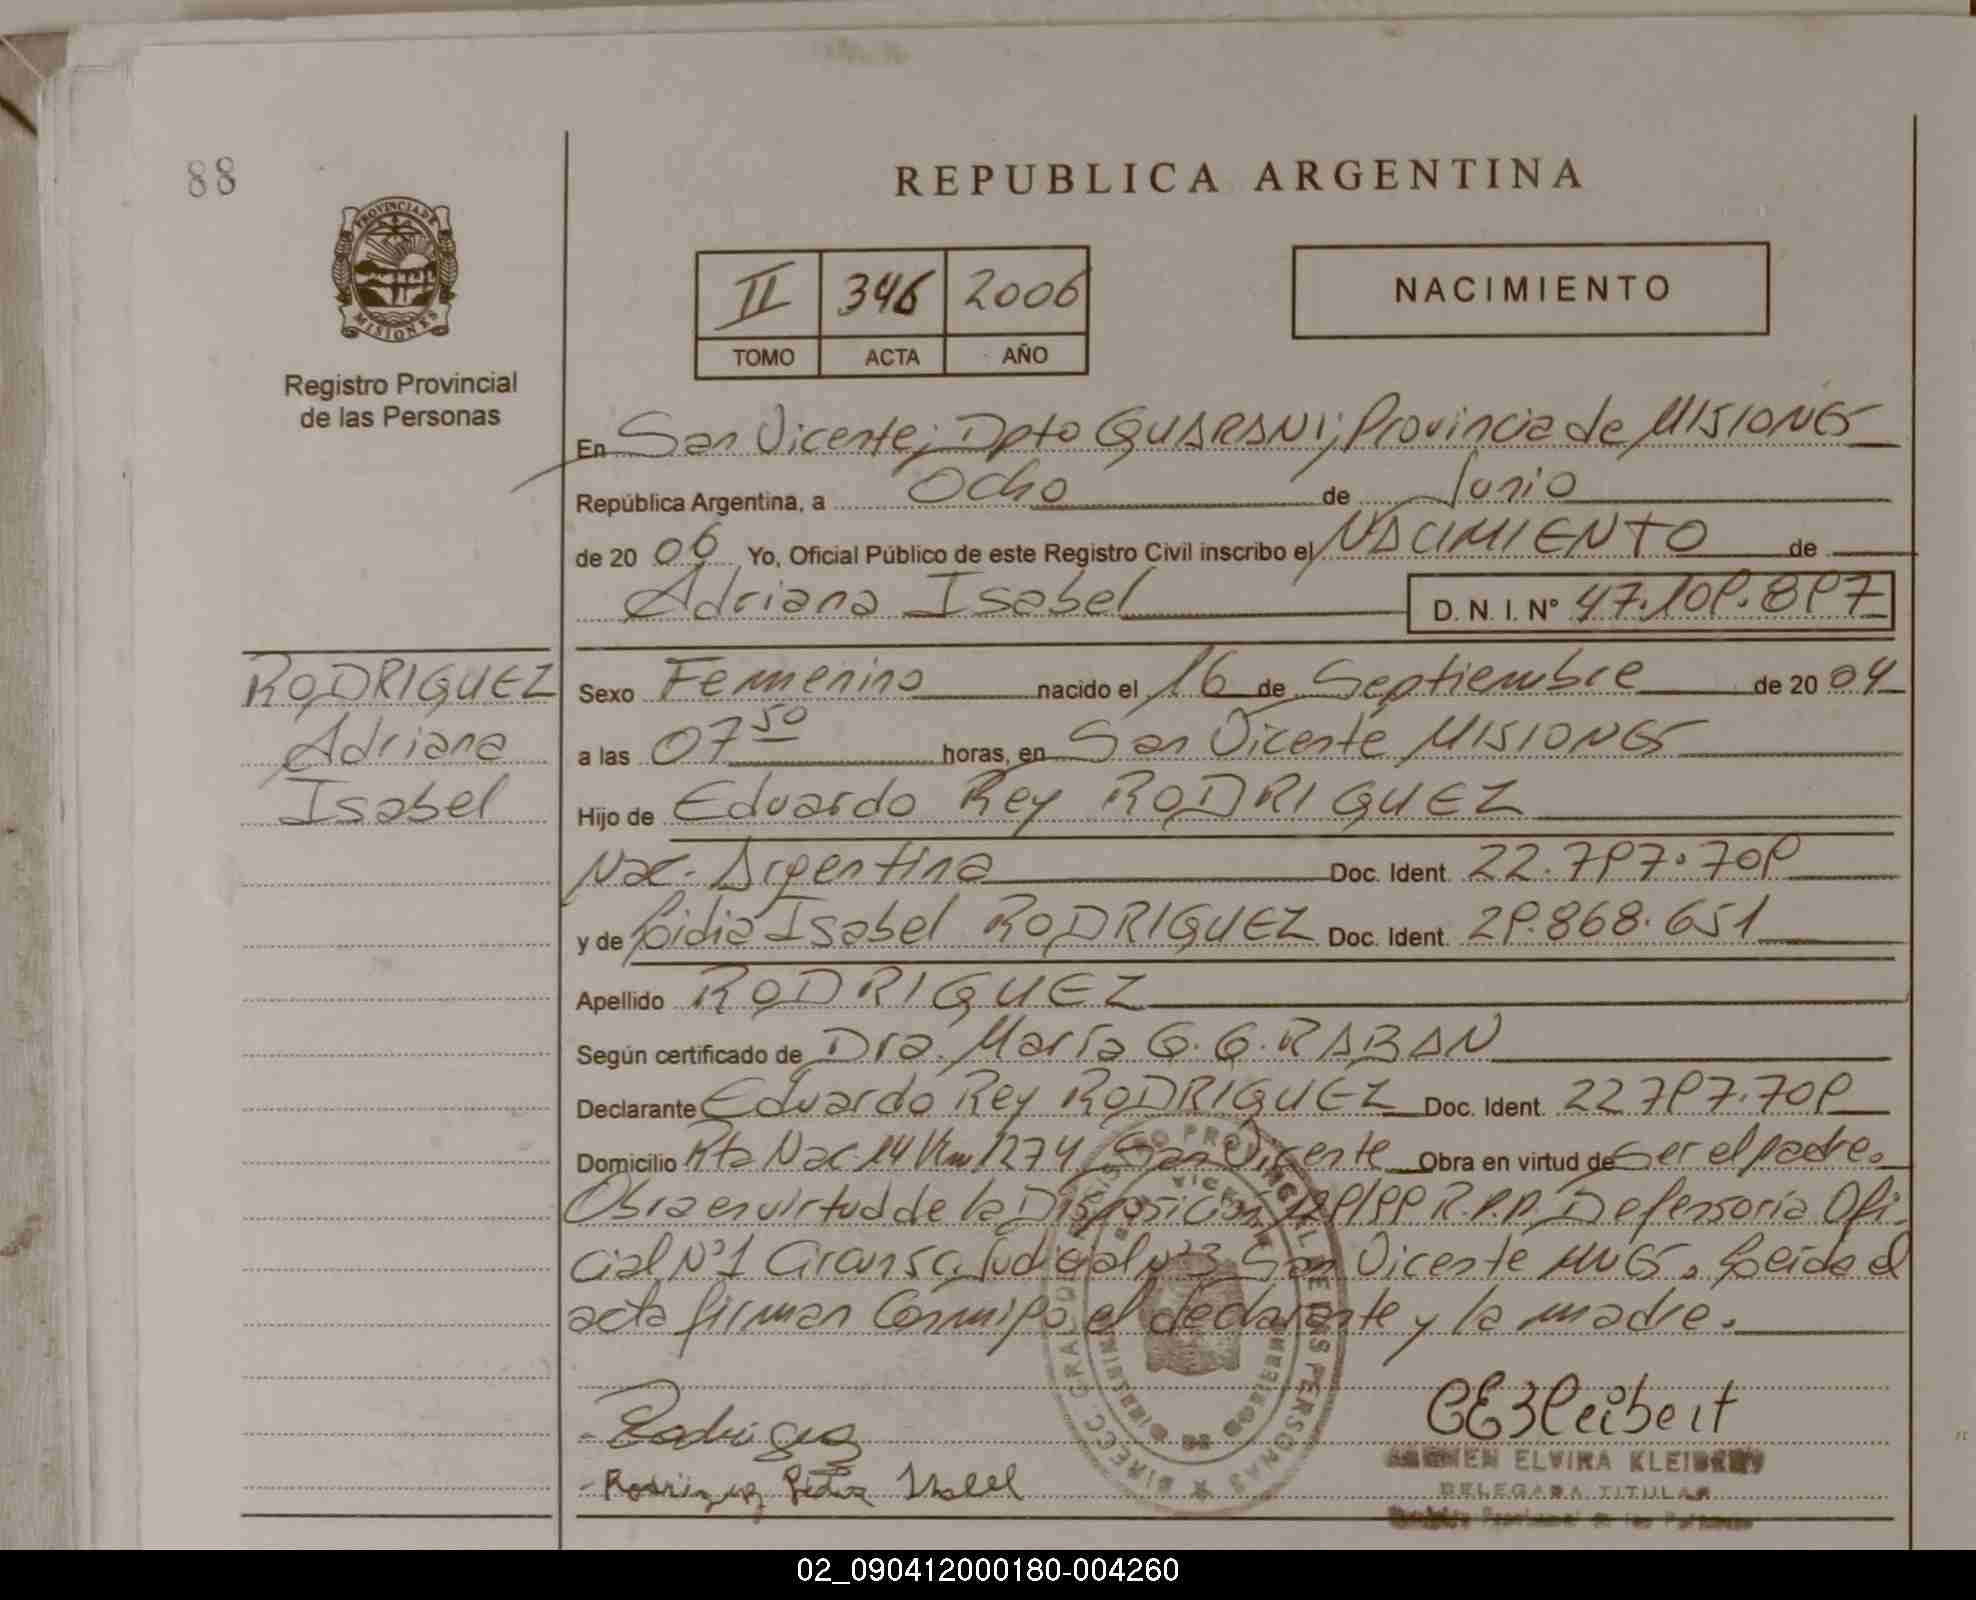 88
REPUBLICA ARGENTINA
PROVINCIA DE
MISIONES
Registro Provincial
de las Personas
II 346 2006
TOMO ACTA AÑO
NACIMIENTO
En San Vicente; Dpto GUARANI; Provincia de MISIONES
República Argentina, a Ocho de Junio
de 20 06 Yo, Oficial Público de este Registro Civil inscribo el NACIMIENTO de
Adriana Isabel D. N. I. Nº 47.109.897
RODRIGUEZ
Adriana
Isabel
Sexo Femenino nacido el 16 de Septiembre de 20 04
a las 07 50 horas, en San Vicente MISIONES
Hijo de Eduardo Rey RODRIGUEZ
Nac. Argentina Doc. Ident. 22.797.709
y de Lidia Isabel RODRIGUEZ Doc. Ident. 29.868.651
Apellido RODRIGUEZ
Según certificado de Dra. María G. G. RABAN
Declarante Eduardo Rey RODRIGUEZ Doc. Ident. 22.797.709
Domicilio Rta Nac. 14 Km 1274 San Vicente Obra en virtud de Ser el padre.
Obra en virtud de la Disposición /99 R.P.P. Defensoría Ofi-
cial Nº1 Circunsc. Judicial Nº3 San Vicente MNES. Leída el
acta firman Conmigo el declarante y la madre.
Rodriguez
Rodriguez Lidia Isabel
CEKleibert
ELVIRA KLEIBERT
DELEGADA TITULAR
02_090412000180-004260